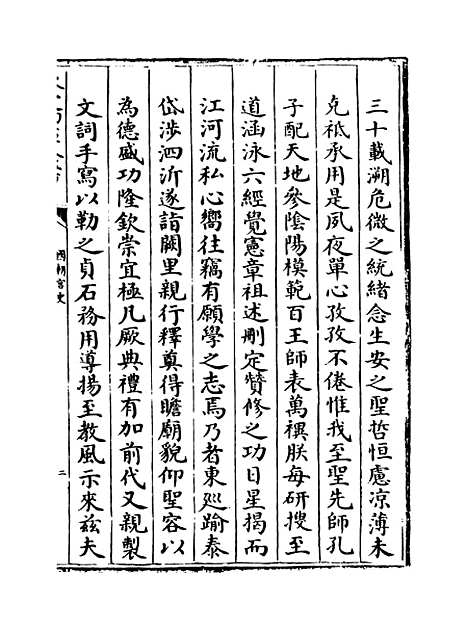 三十載溯危微之統緒念生安之聖哲恒慮凉薄未
克祗承用是夙夜單心孜孜不倦惟我至聖先師孔
子配天地參陰陽模範百王師表萬禩朕每研搜至
道涵泳六經覺憲章祖述刪定贊修之功日星揭而
江河流私心嚮往竊有願學之志焉乃者東廵踰泰
岱涉泗沂遂詣闕里親行釋奠得瞻廟貌仰聖容以
為德盛功隆欽崇宜極凡厥典禮有加前代又親製
文詞手寫以勒之貞石務用導揚至教風示來兹夫
國朝宫史
二